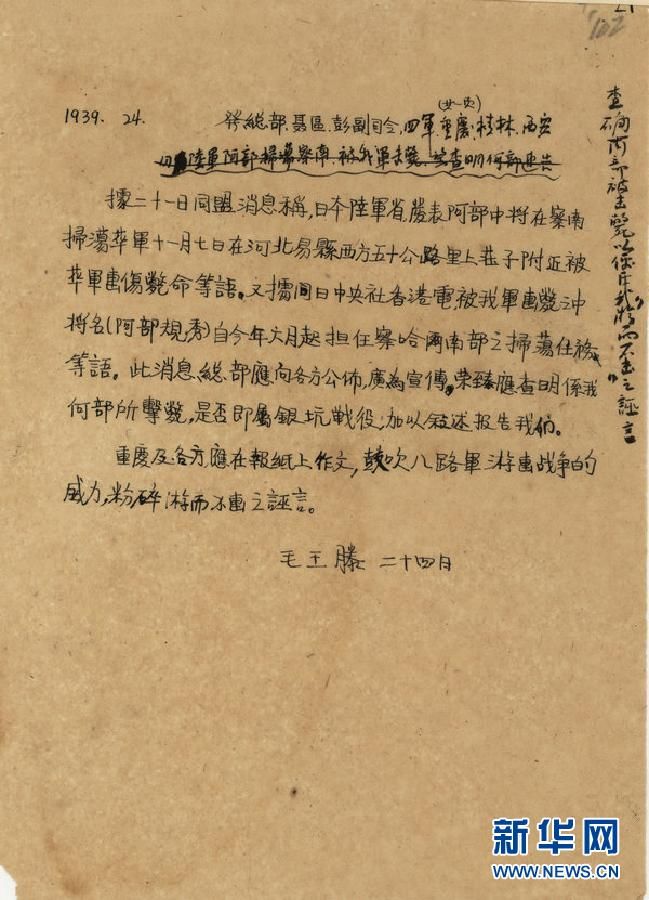 1939. 24.
發總部.聶區.彭副司令.四軍.重慶.桂林.西安
陸軍阿部掃蕩察南.被我軍查明何部
據二十一日同盟消息稱,日本陸軍省發表阿部中將在察南
掃蕩華軍十一月七日在河北易縣西方五十公路里上莊子附近被
華軍擊傷斃命等語。又據同日中央社香港電,被我軍擊斃之中
將名(阿部規秀)自今年六月起担任察哈爾南部之掃蕩任務
等語。此消息,總部應向各方公佈,廣為宣傳。榮臻應查明係我
何部所擊斃,是否即屬銀坑戰役,加以敘述报告我們。
重慶及各方應在報紙上作文,鼓吹八路軍游擊战争的
威力,粉碎游而不擊之誣言。
毛王滕 二十四日
查確阿部被击斃以駁斥我游而不击之誣言
新华网
WWW.NEWS.CN